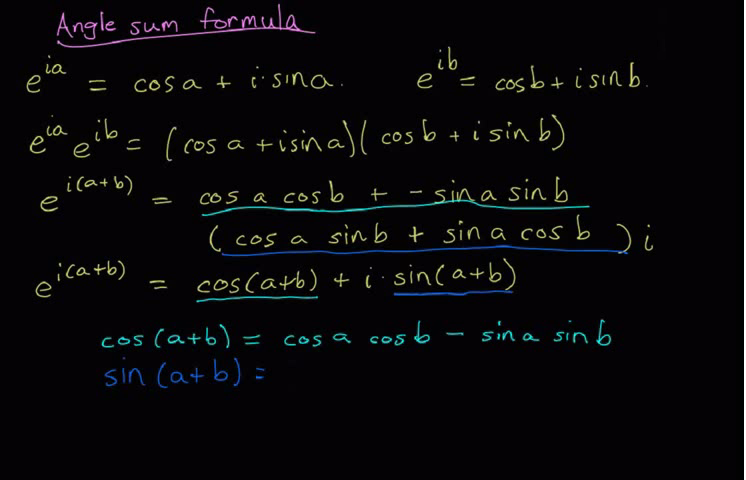 Angle sum formula
e^{ia} = cos a + i·sin a. e^{ib} = cos b + i sin b.
e^{ia} e^{ib} = (cos a + i sin a)(cos b + i sin b)
e^{i(a+b)} = cos a cos b + - sin a sin b
(cos a sin b + sin a cos b) i
e^{i(a+b)} = cos(a+b) + i· sin(a+b)
cos (a+b) = cos a cos b - sin a sin b
sin (a+b) =